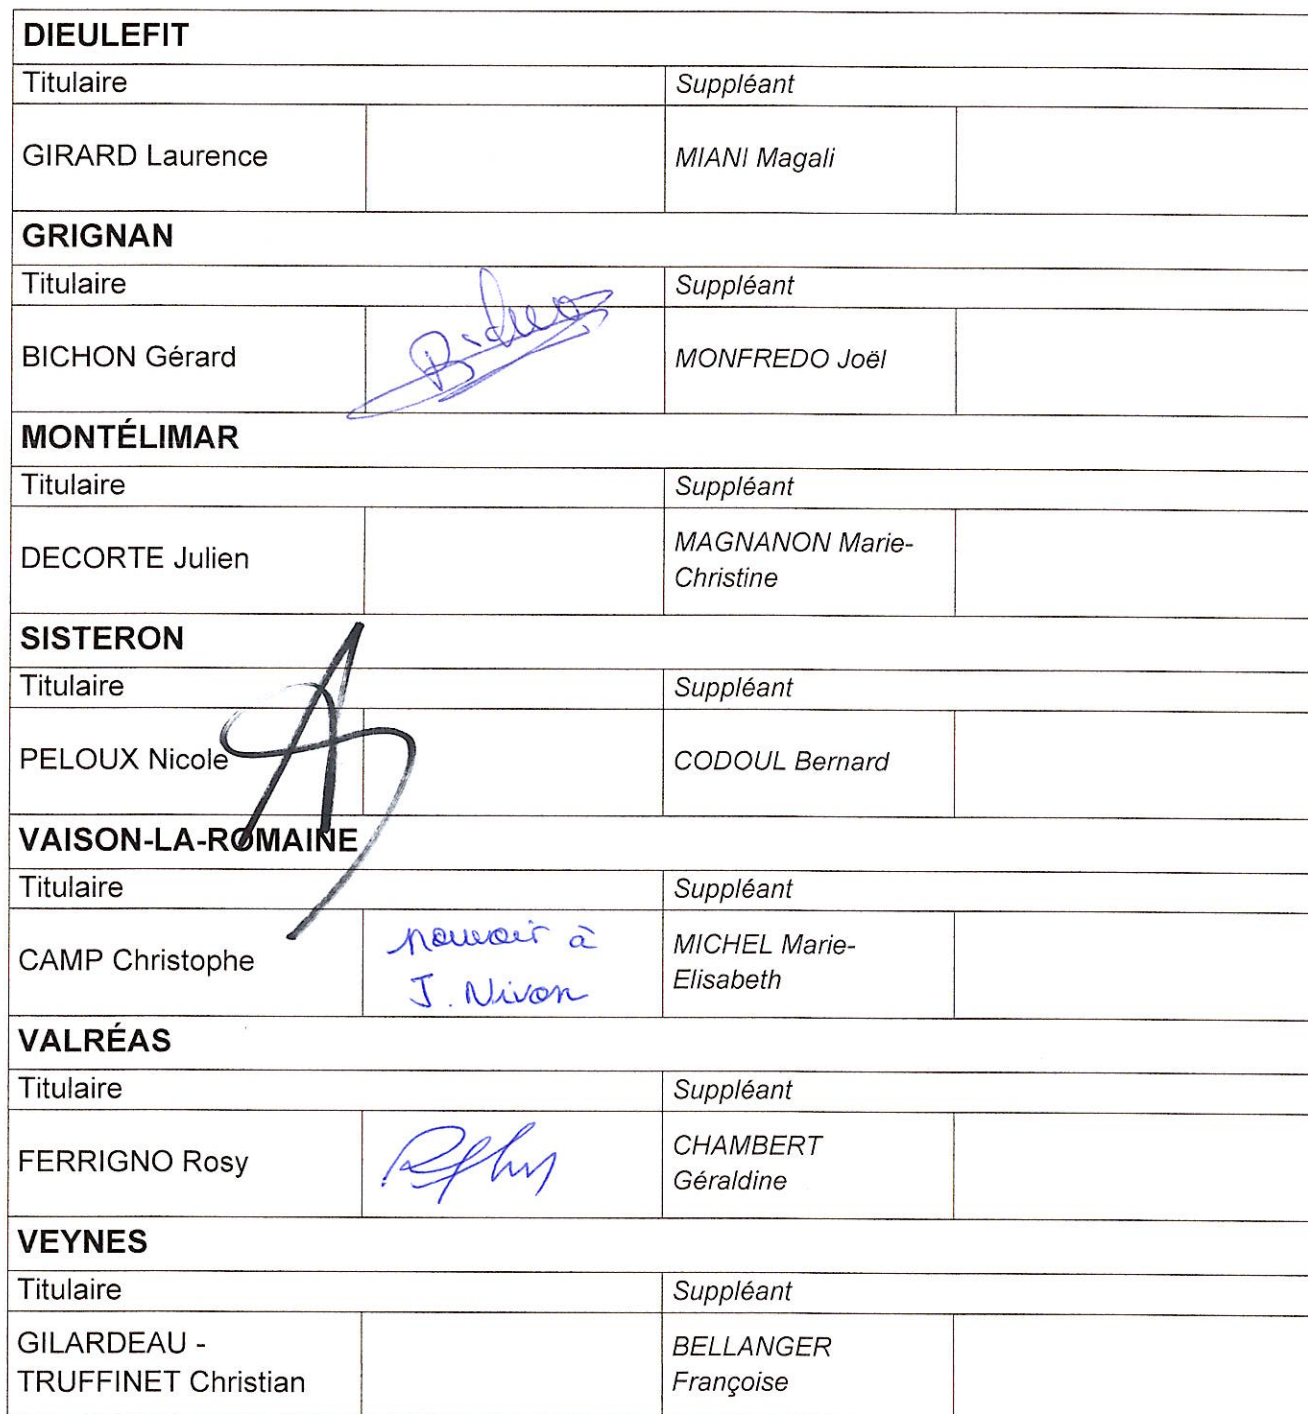 DIEULEFIT
Titulaire Suppléant
GIRARD Laurence MIANI Magali
GRIGNAN
Titulaire Suppléant
BICHON Gérard MONFREDO Joël
MONTÉLIMAR
Titulaire Suppléant
DECORTE Julien MAGNANON Marie-
Christine
SISTERON
Titulaire Suppléant
PELOUX Nicole CODOUL Bernard
VAISON-LA-ROMAINE
Titulaire Suppléant
CAMP Christophe pouvoir à MICHEL Marie-
J. Nivon Elisabeth
VALRÉAS
Titulaire Suppléant
FERRIGNO Rosy CHAMBERT
Géraldine
VEYNES
Titulaire Suppléant
GILARDEAU - BELLANGER
TRUFFINET Christian Françoise